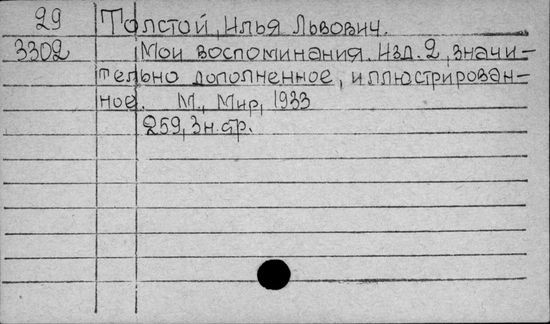 29 Толстой, Илья Львович.
3302 Мои воспоминания. Изд. 2, значи-
тельно дополненное, иллюстрирован-
ное. М., Мир, 1933
259, 3 н. стр.